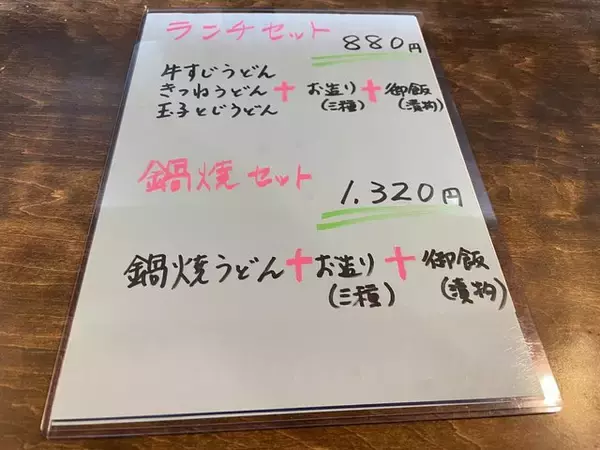 ランチセット 880円
牛すじうどん
きつねうどん + お造り + 御飯
玉子とじうどん (三種) (漬物)
鍋焼セット
1.320円
鍋焼うどん + お造り + 御飯
(三種) (漬物)